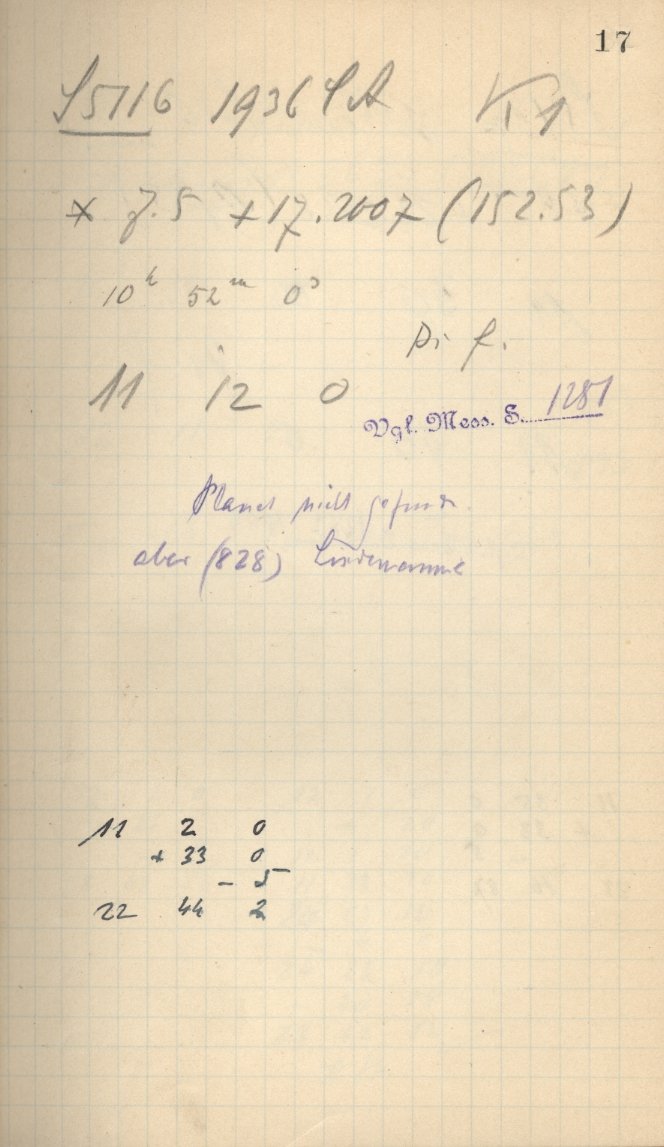 17
S5116 1936 SA K1
* 7.5 +17.2007 (152.53)
10h 52m 0s
Di f.
11 12 0
Vgl. Mess. S. 1281
Planet nicht gefunden
aber (828) Lindemannia
11 2 0
+ 33 0
- 5
22 44 2